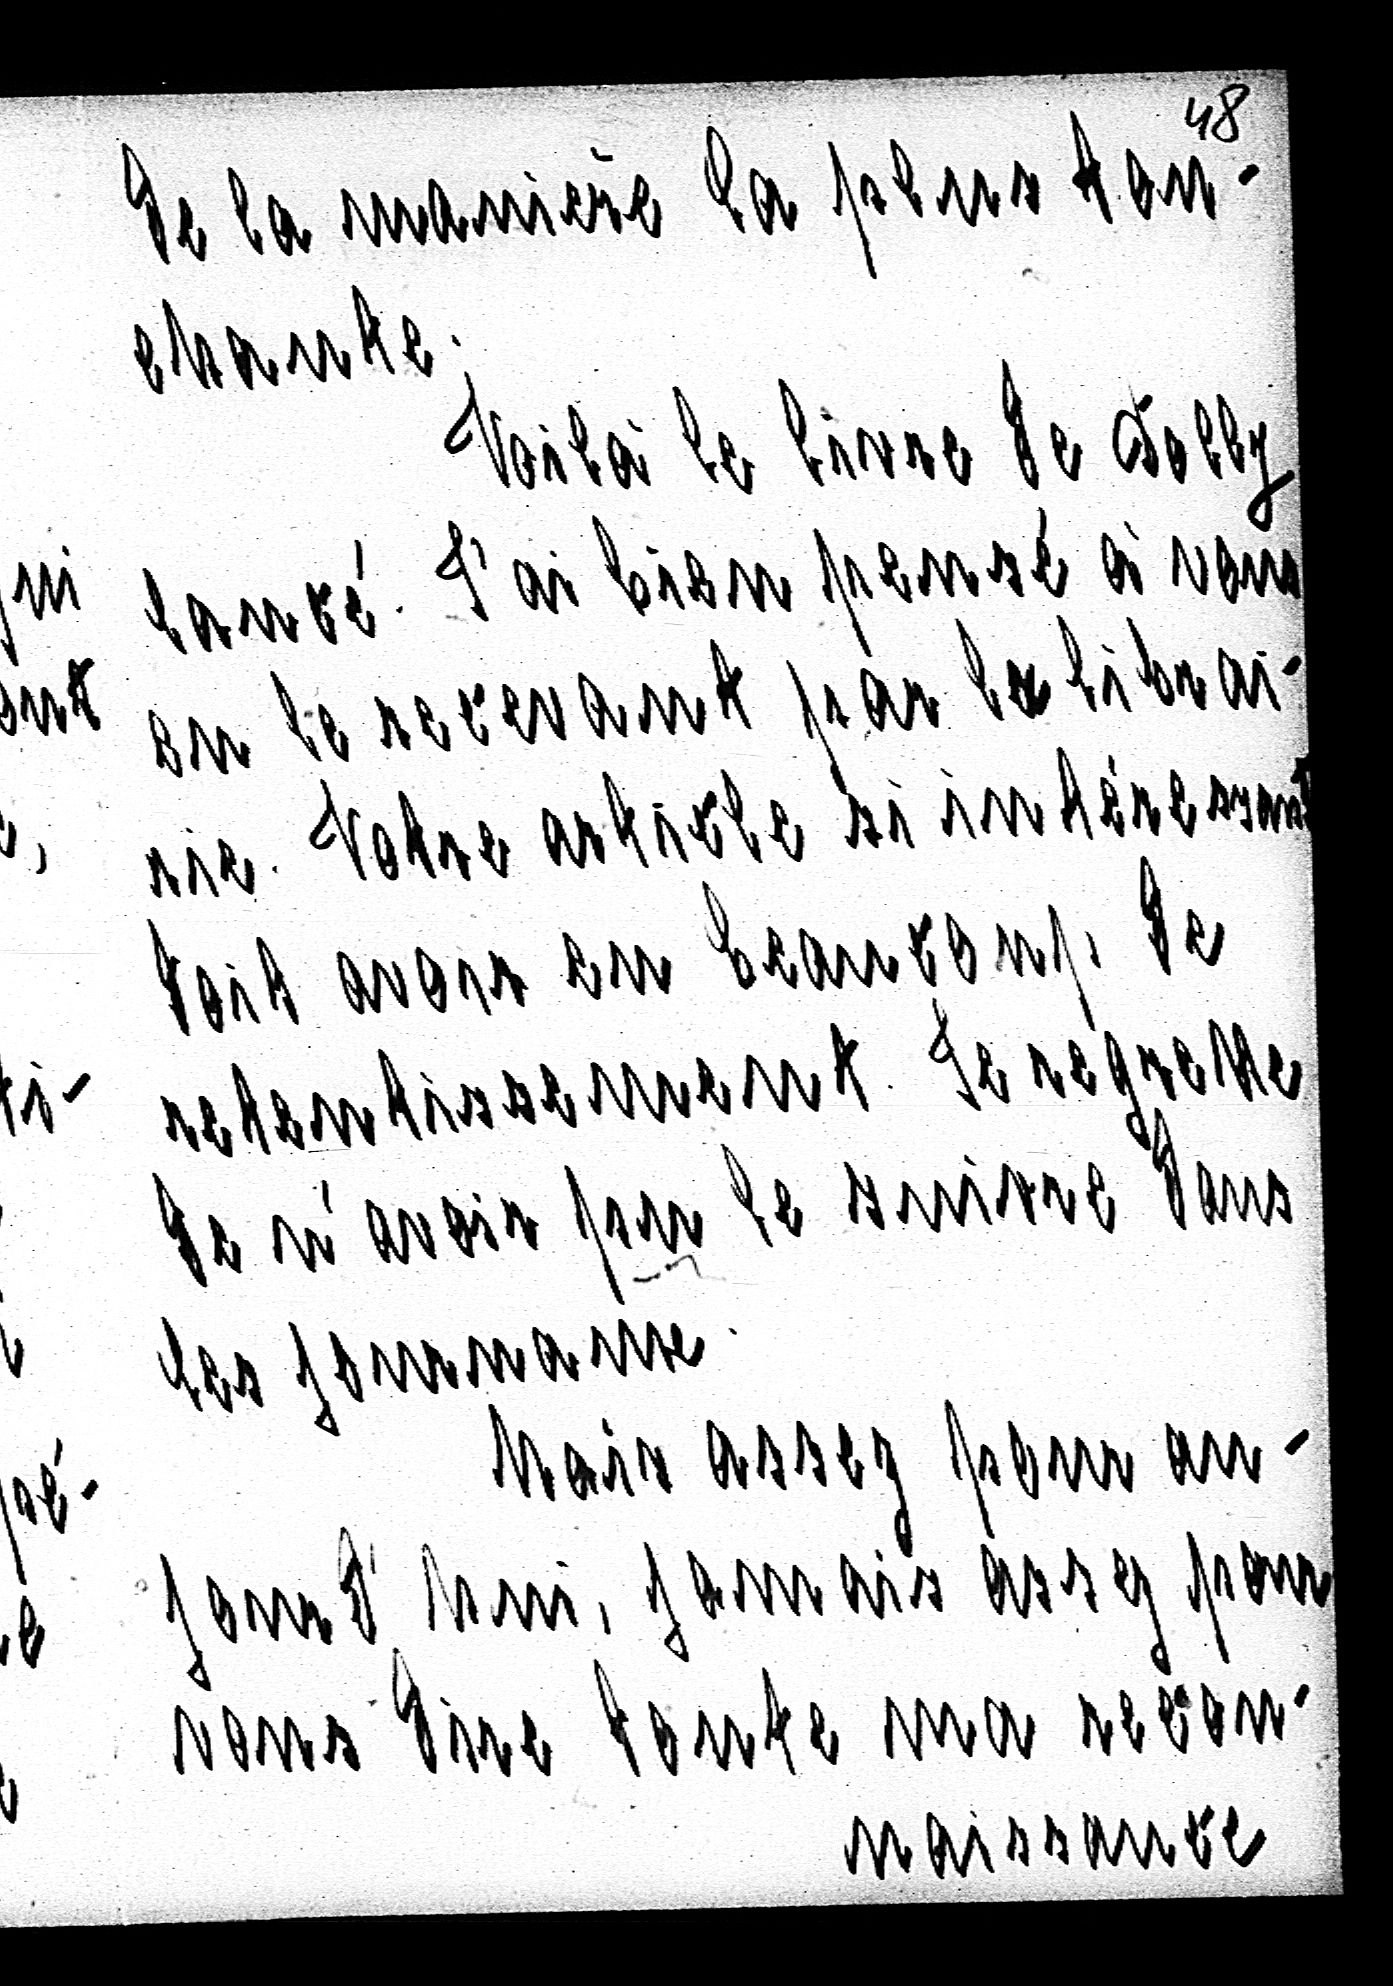 48
de la manière la plus tou-
chante.
Voilà le livre de Dolly
lancé. J'ai bien pensé à vous
en le recevant par la librai-
rie. Votre article si intéressant
doit avoir eu beaucoup de
retentissement. Je regrette
de n'avoir pu le suivre dans
les journaux.
Mais assez pour au-
jourd'hui, jamais assez pour
vous dire toute ma recon-
naissance